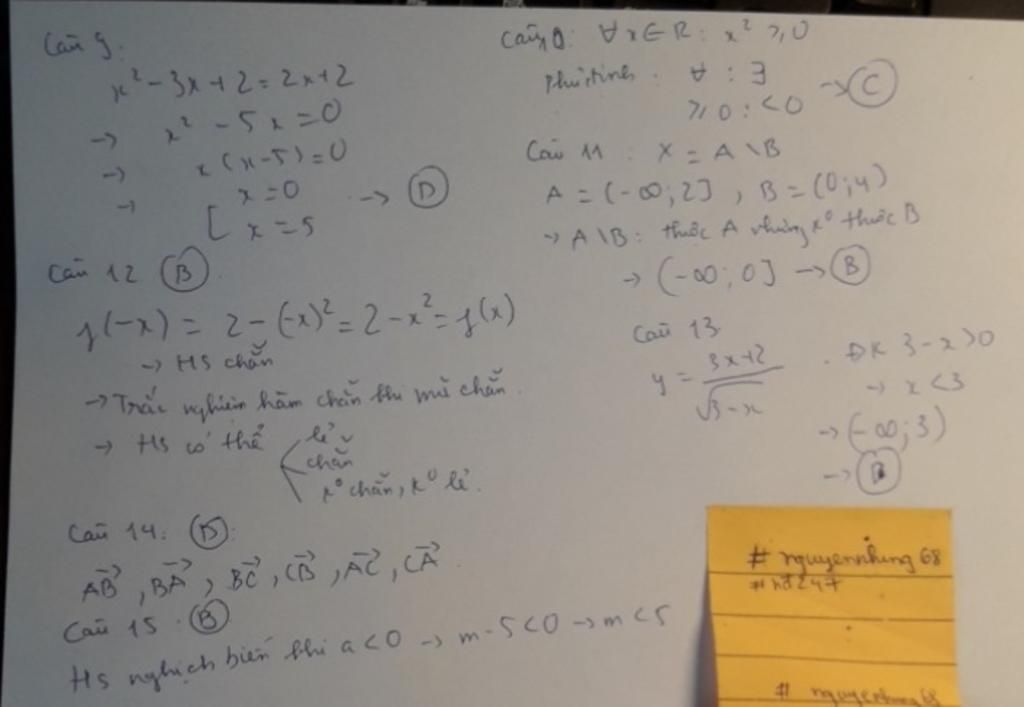 Câu 9.
x² - 3x + 2 = 2x + 2
→ x² - 5x = 0
→ x(x-5) = 0
→ [ x = 0
x = 5 → D
Câu 12 B.
f(-x) = 2 - (-x)² = 2 - x² = f(x)
→ HS chẵn
→ Trắc nghiệm hàm chẵn khi mũ chẵn.
→ HS có thể
lẻ
chẵn
k° chẵn, k° lẻ.
Câu 14: D:
AB→, BA→, BC→, CB→, AC→, CA→
Câu 15. B
HS nghịch biến khi a < 0 → m - 5 < 0 → m < 5
Câu 10: ∀x ∈ R: x² ≥ 0
∀ : ∃
≥ 0 : < 0 → C
Câu 11: X = A \ B
A = (-∞; 2], B = (0; 4)
→ A \ B: thuộc A nhưng k° thuộc B
→ (-∞; 0] → B
Câu 13.
y = (3x+2)/√(3-x) . ĐK 3 - x > 0
→ x < 3
→ (-∞; 3)
→
# nguyennhung 68
# hd247